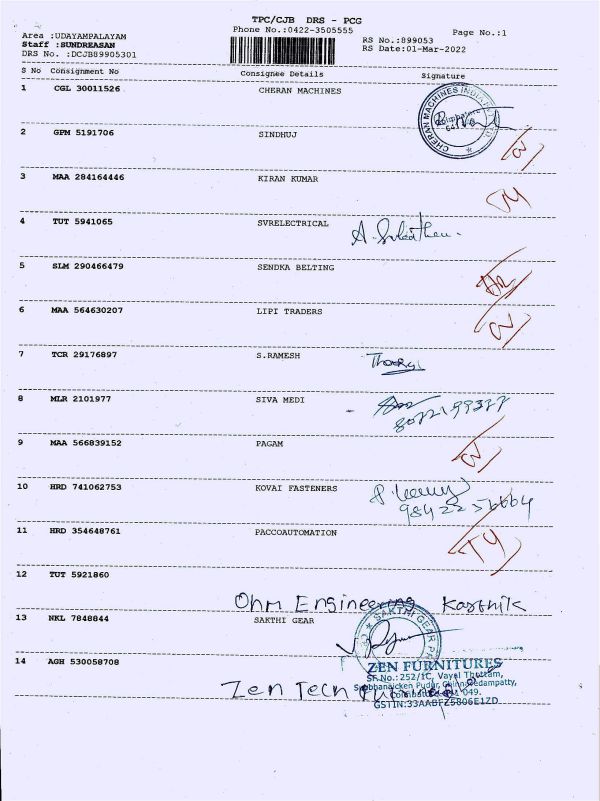 TPC/CJB DRS - PCG
Area :UDAYAMPALAYAM Phone No.:0422-3505555 Page No.:1
Staff :SUNDREASAN RS No.:899053
DRS No. :DCJB89905301 RS Date:01-Mar-2022
S No Consignment No Consignee Details Signature
1 CGL 30011526 CHERAN MACHINES
CHERAN MACHINES INDIA
2 GPM 5191706 SINDHUJ
3 MAA 284164446 KIRAN KUMAR
4 TUT 5941065 SVRELECTRICAL
5 SLM 290466479 SENDKA BELTING
6 MAA 564630207 LIPI TRADERS
7 TCR 29176897 S.RAMESH
8 MLR 2101977 SIVA MEDI
9 MAA 566839152 PAGAM
10 HRD 741062753 KOVAI FASTENERS
11 HRD 354648761 PACCOAUTOMATION
12 TUT 5921860
Ohm Engineering Karthik
13 NKL 7848844 SAKTHI GEAR
SAKTHI GEAR
14 AGH 530058708
ZEN FURNITURES
SF.No.:252/1C, Vayal Thottam,
Pudur, Chinnavedampatty,
049.
GSTIN:33AABFZ5806E1ZD
Zen Tech